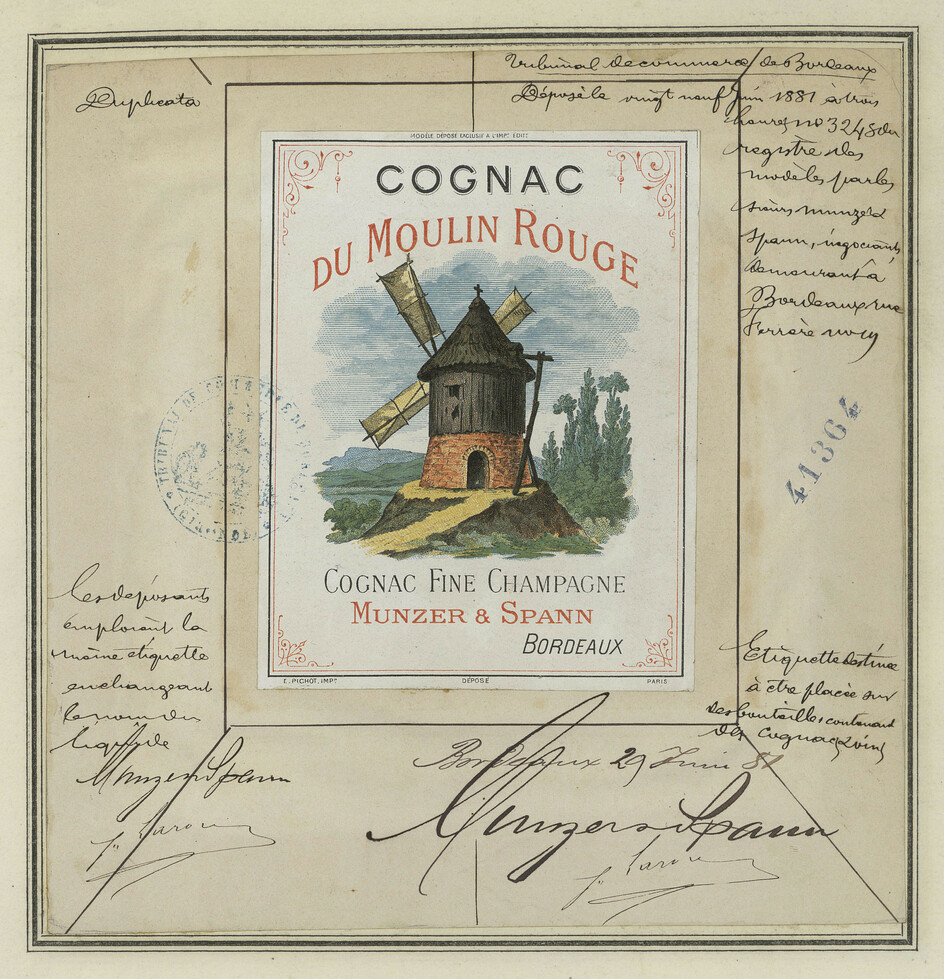 Duplicata
Tribunal de commerce de Bordeaux
Déposé le vingt neuf Juin 1881 à trois
heures, no 3248 du
registre des
modèles par les
sieurs Munzer &
Spann, négociants
demeurant à
Bordeaux rue
Ferrère no
MODÈLE DÉPOSÉ EXCLUSIF A L'IMP. EDIT.
COGNAC
DU MOULIN ROUGE
COGNAC FINE CHAMPAGNE
MUNZER & SPANN
BORDEAUX
E. PICHOT, IMPR
DÉPOSÉ
PARIS
TRIBUNAL DE COMMERCE DE
41364
Les déposants
emploient la
même étiquette
en changeant
le nom du
liquide
Munzer & Spann
Etiquette destinée
à être placée sur
des bouteilles contenant
du cognac
Bordeaux 29 Juin 81
Munzer & Spann